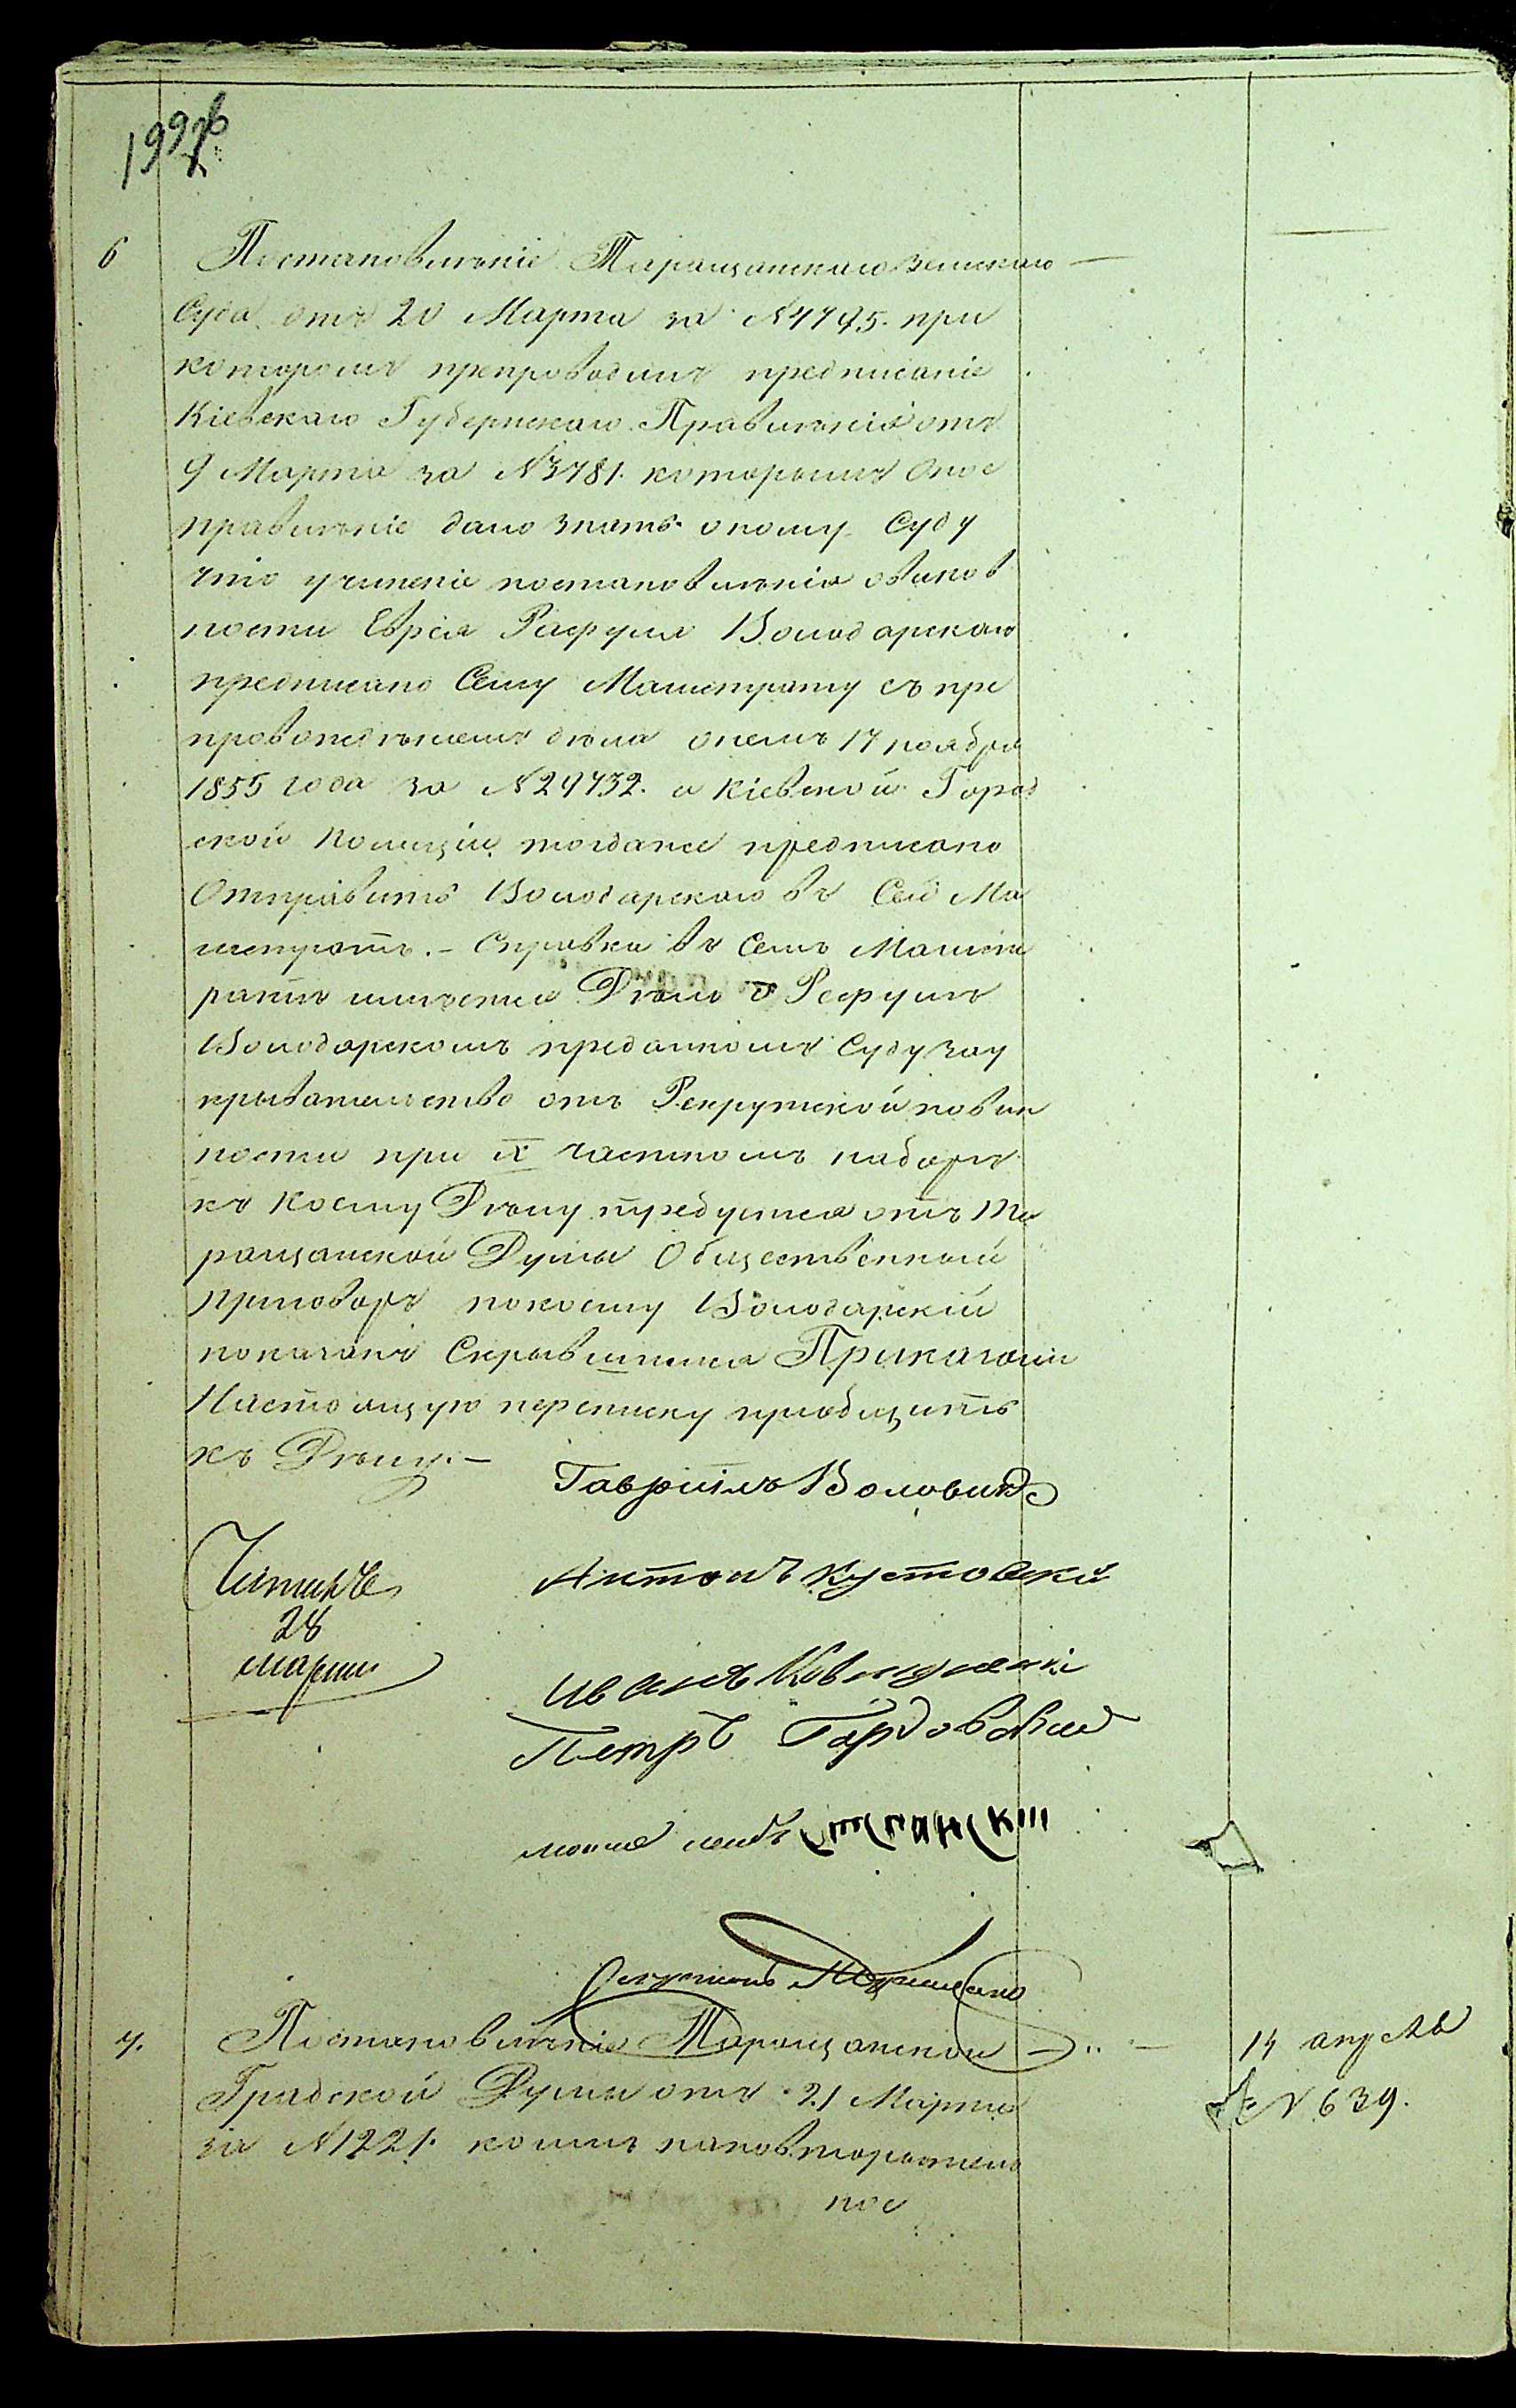 6 Постановленіе Таращанскаго земскаго
Суда отъ 20 Марта за №4795. при
которомъ препроводилъ предписаніе
Кіевскаго Губернскаго Правленія отъ
9 Марта за №3781. которымъ Оное
правленіе дало знать оному Суду
что учиненіе постановленія овинов
ности Еврея Расфула Володарскаго
предписано Сему Магистрату съ пре
провожденіемъ дѣла онемъ 17 ноября
1855 года за №29732. а Кіевской Город
ской Полиціи тогдаже предписано
Отправить Володарскаго въ Сей Ма
гистратъ. – Справка въ Семъ Магист
ратѣ имѣется Дѣло о Рефулѣ
Володарскомъ преданномъ Суду зау
крывательство отъ Рекрутской повин
ности при IX частномъ наборѣ
къ Коему Дѣлу требуется отъ Та
ращанской Думы Общественный
приговоръ покоему Володарскій
показанъ Скрывшимся Приказали
Настоящую переписку пріобщить
къ Дѣлу. –
Гавріилъ Воловикъ
Читалъ
28
марта
Антонъ Кустовскій
Иванъ
Петръ
Секретарь
7. Постановленіе Таращанской
Градской Думы отъ 21 Марта
за №1221. коимъ наповторитель
ное
14 апреля
№ 639.